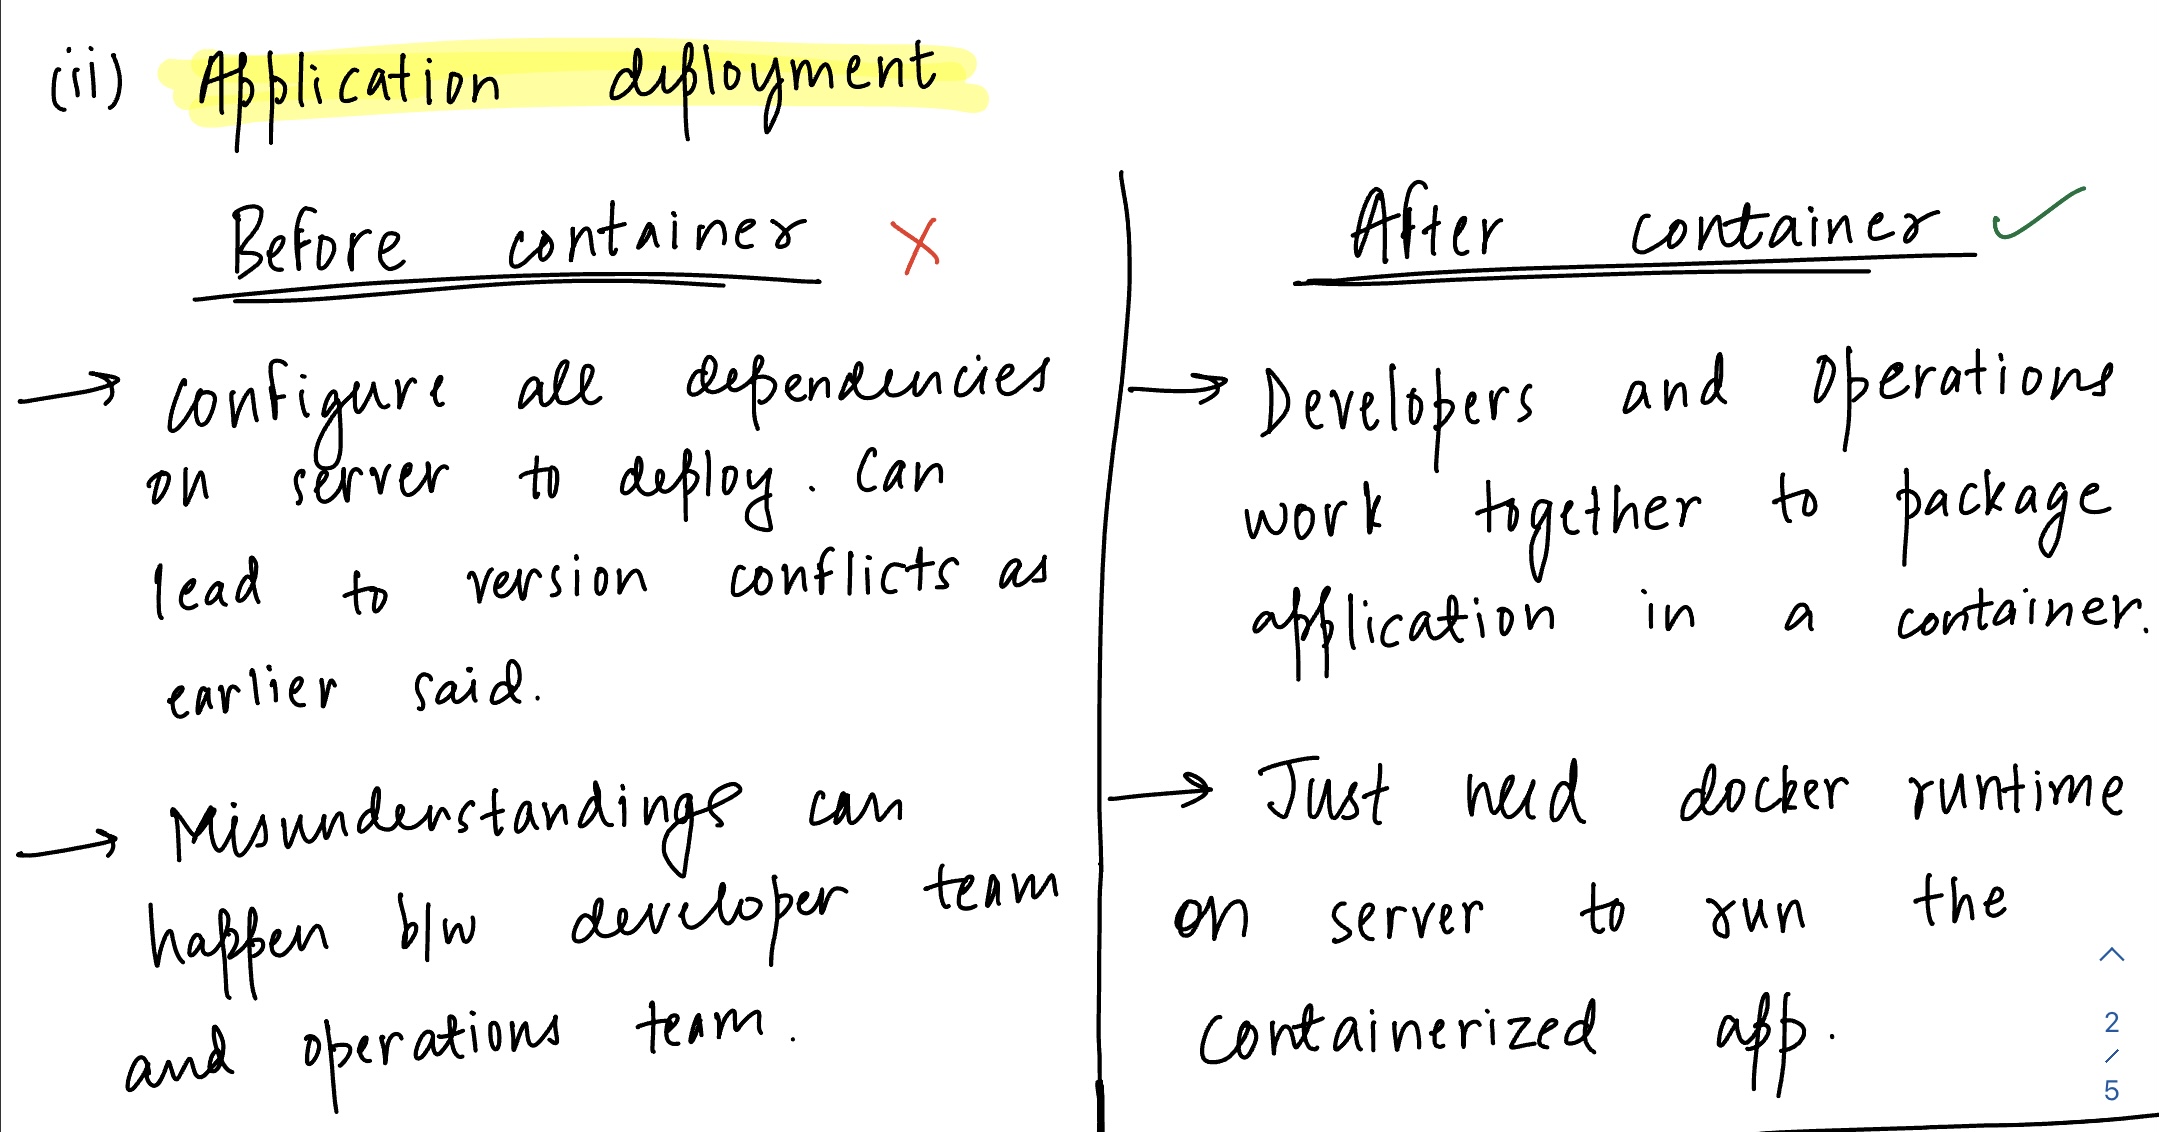 (ii) Application deployment
Before container
→ configure all dependencies
on server to deploy. Can
lead to version conflicts as
earlier said.
→ Misunderstandings can
happen b/w developer team
and operations team.
After container
→ Developers and Operations
work together to package
application in a container.
→ Just need docker runtime
on server to run the
containerized app.
2
/
5